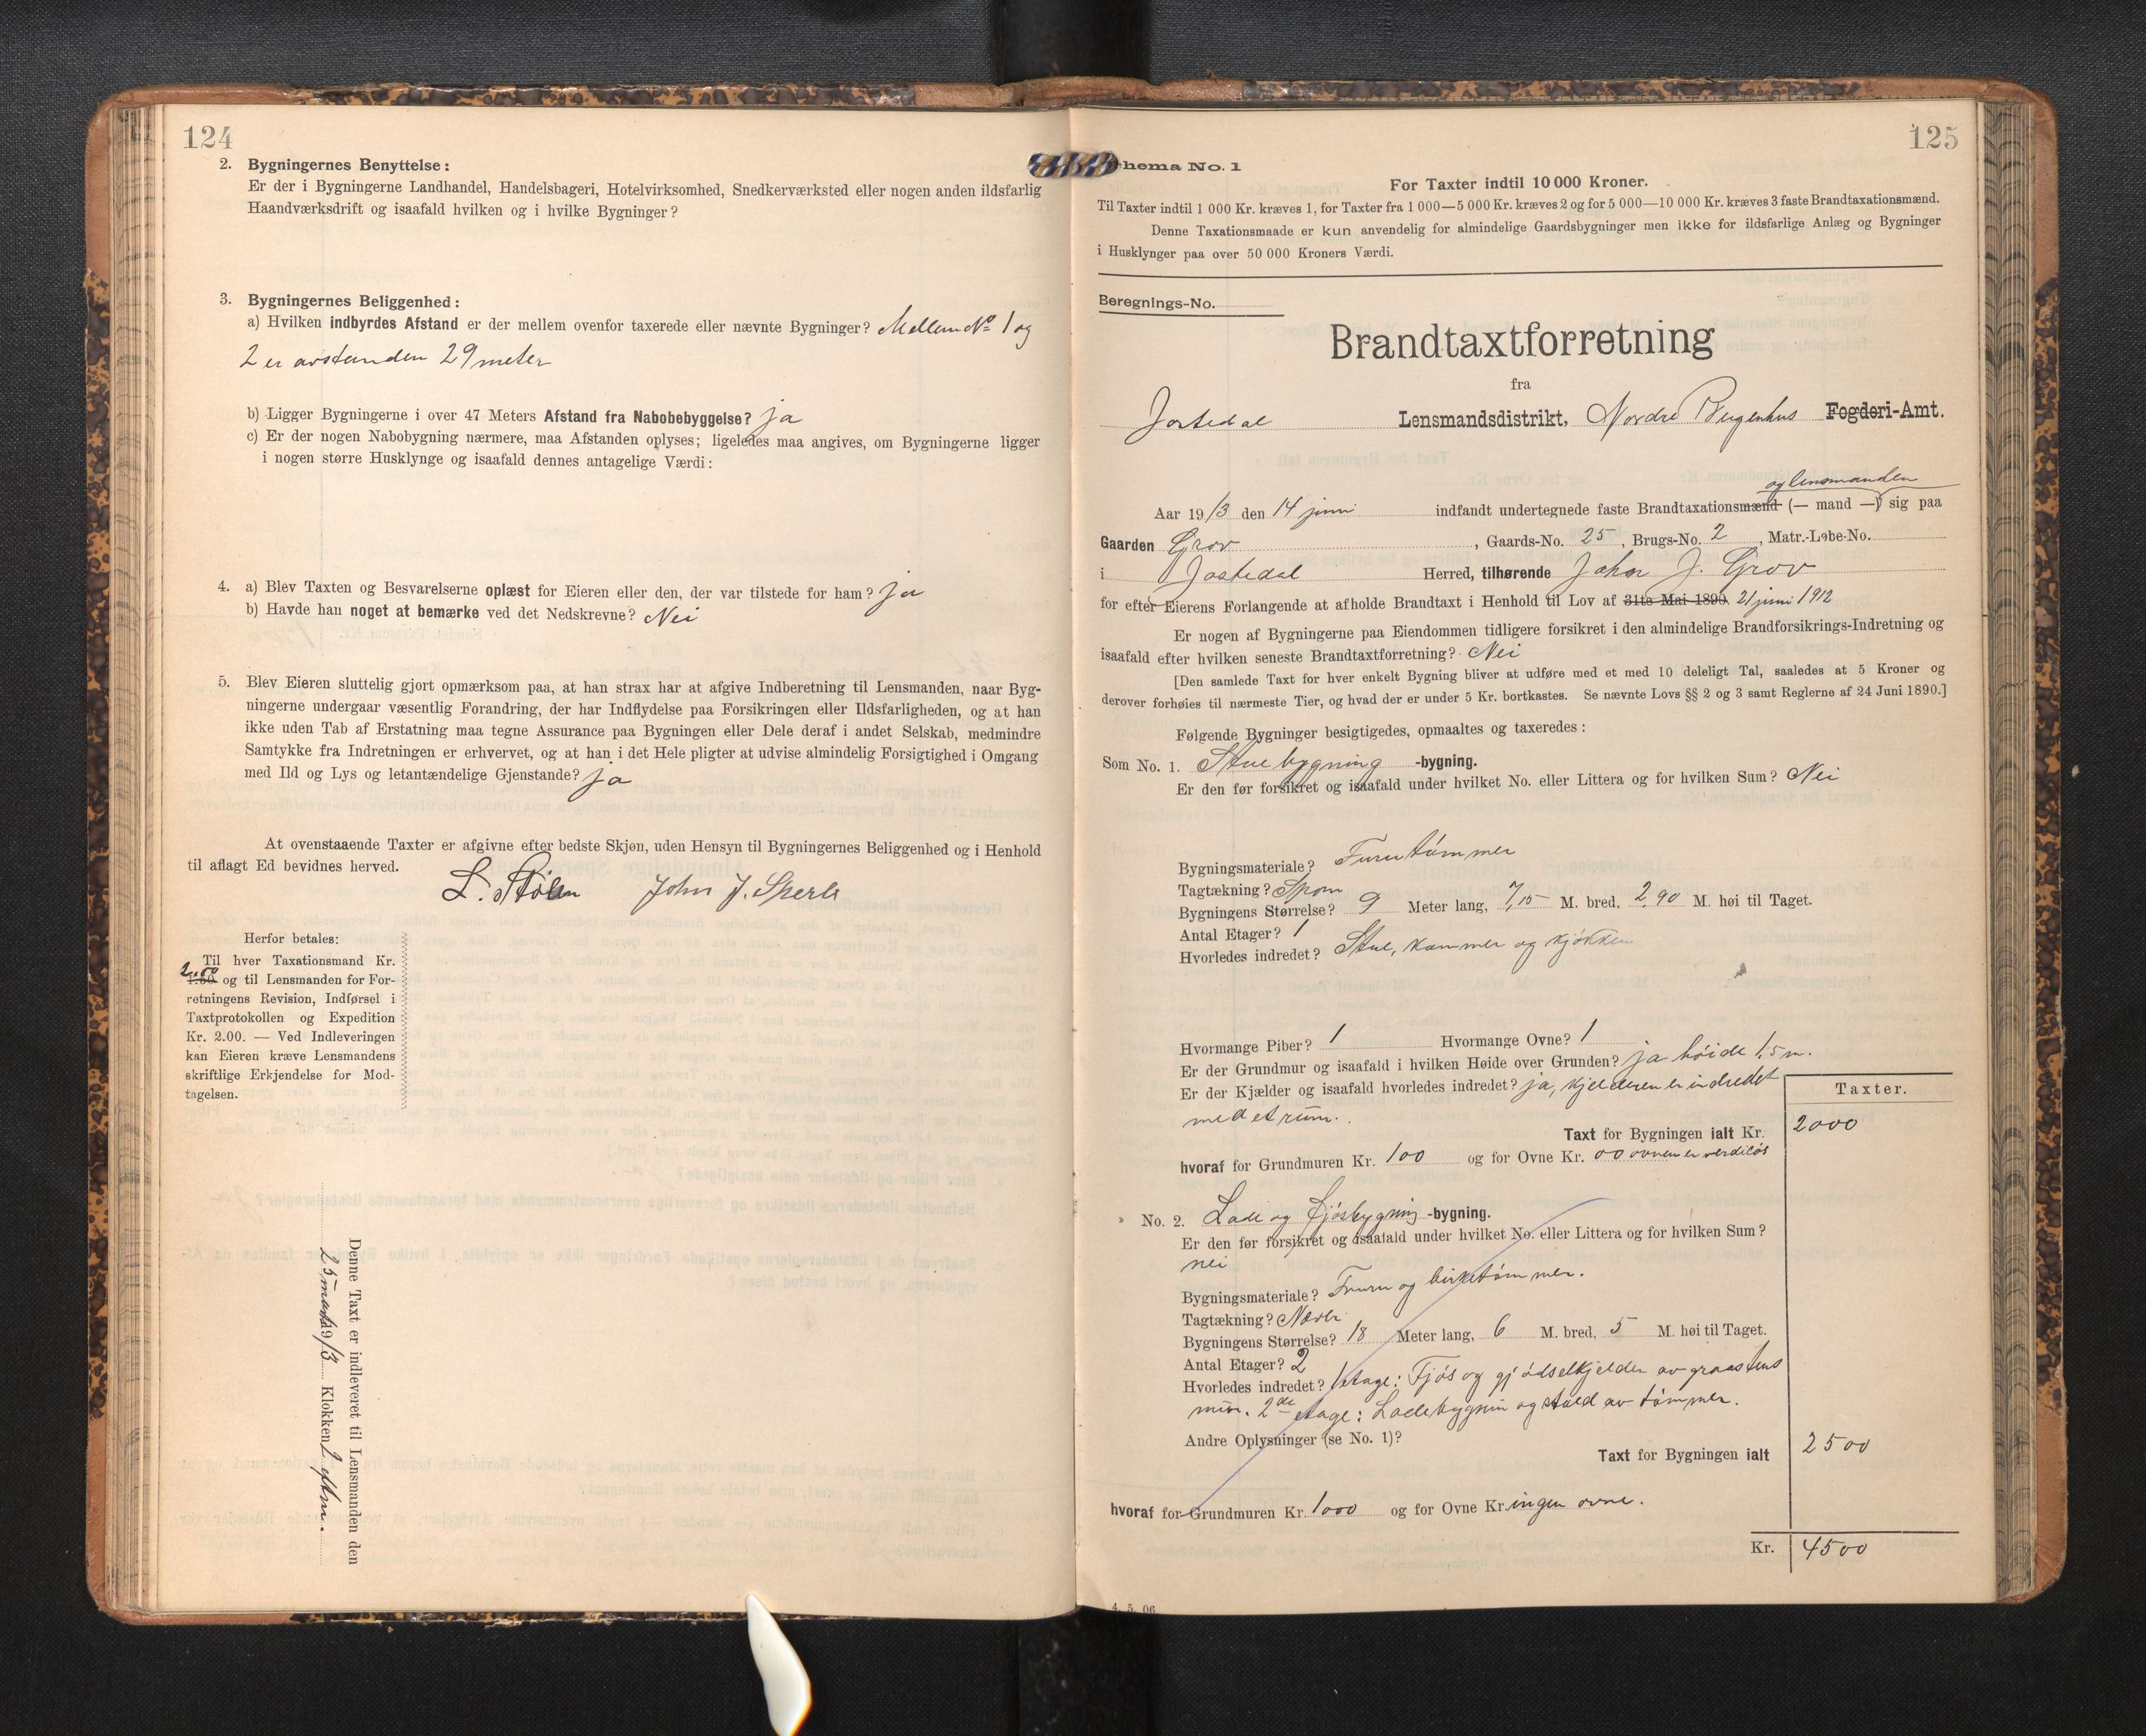 124
2. Bygningernes Benyttelse:
Er der i Bygningerne Landhandel, Handelsbageri, Hotelvirksomhed, Snedkerværksted eller nogen anden ildsfarlig
Haandværksdrift og isaafald hvilken og i hvilke Bygninger?
3. Bygningernes Beliggenhed:
a) Hvilken indbyrdes Afstand er der mellem ovenfor taxerede eller nævnte Bygninger? Mellem No 1 og
2 er avstanden 29 meter
b) Ligger Bygningerne i over 47 Meters Afstand fra Nabobebyggelse? ja
c) Er der nogen Nabobygning nærmere, maa Afstanden oplyses; ligeledes maa angives, om Bygningerne ligger
i nogen større Husklynge og isaafald dennes antagelige Værdi:
4. a) Blev Taxten og Besvarelserne oplæst for Eieren eller den, der var tilstede for ham? ja
b) Havde han noget at bemærke ved det Nedskrevne? Nei
5. Blev Eieren sluttelig gjort opmærksom paa, at han strax har at afgive Indberetning til Lensmanden, naar Byg-
ningerne undergaar væsentlig Forandring, der har Indflydelse paa Forsikringen eller Ildsfarligheden, og at han
ikke uden Tab af Erstatning maa tegne Assurance paa Bygningen eller Dele deraf i andet Selskab, medmindre
Samtykke fra Indretningen er erhvervet, og at han i det Hele pligter at udvise almindelig Forsigtighed i Omgang
med Ild og Lys og letantændelige Gjenstande? ja
At ovenstaaende Taxter er afgivne efter bedste Skjøn, uden Hensyn til Bygningernes Beliggenhed og i Henhold
til aflagt Ed bevidnes herved.
L. Stølen John J. Sperle
Herfor betales:
Til hver Taxationsmand Kr.
2,00
1.60 og til Lensmanden for For-
retningens Revision, Indførsel i
Taxtprotokollen og Expedition
Kr. 2.00. — Ved Indleveringen
kan Eieren kræve Lensmandens
skriftlige Erkjendelse for Mod-
tagelsen.
Denne Taxt er indleveret til Lensmanden den
25 1913 Klokken 2 eftm.
125
hema No. 1
For Taxter indtil 10 000 Kroner.
Til Taxter indtil 1 000 Kr. kræves 1, for Taxter fra 1 000—5 000 Kr. kræves 2 og for 5 000—10 000 Kr. kræves 3 faste Brandtaxationsmænd.
Denne Taxationsmaade er kun anvendelig for almindelige Gaardsbygninger men ikke for ildsfarlige Anlæg og Bygninger
i Husklynger paa over 50 000 Kroners Værdi.
Beregnings-No.
Brandtaxtforretning
fra
Jostedal Lensmandsdistrikt, Nordre Bergenhus Fogderi-Amt.
og lensmanden
Aar 1913 den 14 juni indfandt undertegnede faste Brandtaxationsmænd (— mand —) sig paa
Gaarden Grov, Gaards-No. 25, Brugs-No. 2, Matr.-Løbe-No.
i Jostedal Herred, tilhørende John J. Grov
for efter Eierens Forlangende at afholde Brandtaxt i Henhold til Lov af 31te Mai 1890. 21 juni 1912
Er nogen af Bygningerne paa Eiendommen tidligere forsikret i den almindelige Brandforsikrings-Indretning og
isaafald efter hvilken seneste Brandtaxtforretning? Nei
[Den samlede Taxt for hver enkelt Bygning bliver at udføre med et med 10 deleligt Tal, saaledes at 5 Kroner og
derover forhøies til nærmeste Tier, og hvad der er under 5 Kr. bortkastes. Se nævnte Lovs §§ 2 og 3 samt Reglerne af 24 Juni 1890.]
Følgende Bygninger besigtigedes, opmaaltes og taxeredes:
Som No. 1. Stuebygning -bygning.
Er den før forsikret og isaafald under hvilket No. eller Littera og for hvilken Sum? Nei
Bygningsmateriale? Furutømmer
Tagtækning? Spon
Bygningens Størrelse? 9 Meter lang, 7,15 M. bred, 2,90 M. høi til Taget.
Antal Etager? 1
Hvorledes indredet? Stue, kammer og kjøkken
Hvormange Piber? 1 Hvormange Ovne? 1
Er der Grundmur og isaafald i hvilken Høide over Grunden? ja høide 1,5 m.
Er der Kjælder og isaafald hvorledes indredet? ja, kjelderen er indredet
med et rum.
Taxter.
Taxt for Bygningen ialt Kr. 2000
hvoraf for Grundmuren Kr. 100 og for Ovne Kr. 00 ovnen er verdiløs
No. 2. Lade og Fjøsbygning -bygning.
Er den før forsikret og isaafald under hvilket No. eller Littera og for hvilken Sum?
nei
Bygningsmateriale? Furu og birketømmer.
Tagtækning? Næver
Bygningens Størrelse? 18 Meter lang, 6 M. bred, 5 M. høi til Taget.
Antal Etager? 2
Hvorledes indredet? 1 etage: Fjøs og gjødselkjelder av graastens
mur. 2de etage: Ladebygnin og stald av tømmer.
Andre Oplysninger (se No. 1)?
Taxt for Bygningen ialt 2500
hvoraf for Grundmuren Kr. 1000 og for Ovne Kr. ingen ovne.
Kr. 4500
4. 5. 06.